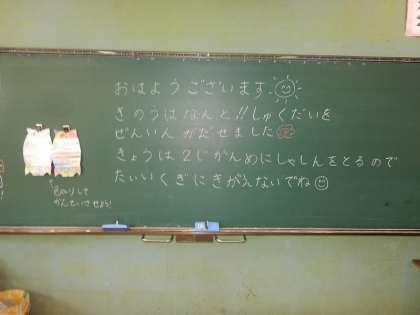 おはようございます。
きのうはなんと!!しゅくだいを
ぜんいんがだせました
きょうは2じかんめにしゃしんをとるので
たいいくぎにきがえないでね
いろぬりして
かんせいさせよう!